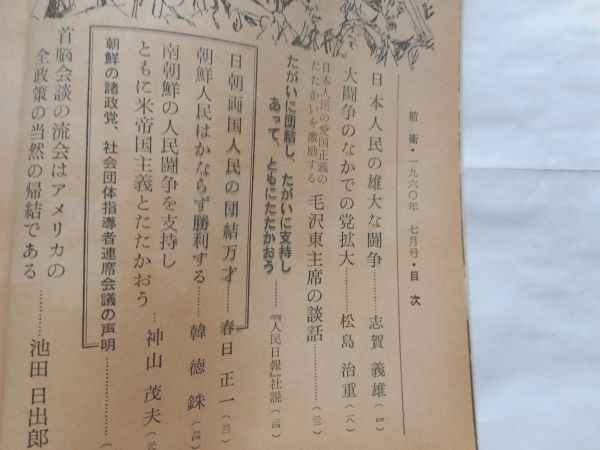 前衛・一九六〇年 七月号・目次
日本人民の雄大な闘争……志賀義雄(四)
大闘争のなかでの党拡大……松島治重(一八)
日本人民の愛国正義の
たたかいを激励する
毛沢東主席の談話……(三)
たがいに団結し、たがいに支持し
あって、ともにたたかおう……『人民日報』社説(二四)
日朝両国人民の団結万才……春日正一
朝鮮人民はかならず勝利する……韓徳銖
南朝鮮の人民闘争を支持し
ともに米帝国主義とたたかおう……神山茂夫
朝鮮の諸政党、社会団体指導者連席会議の声明……
首脳会談の流会はアメリカの
全政策の当然の帰結である……池田日出郎